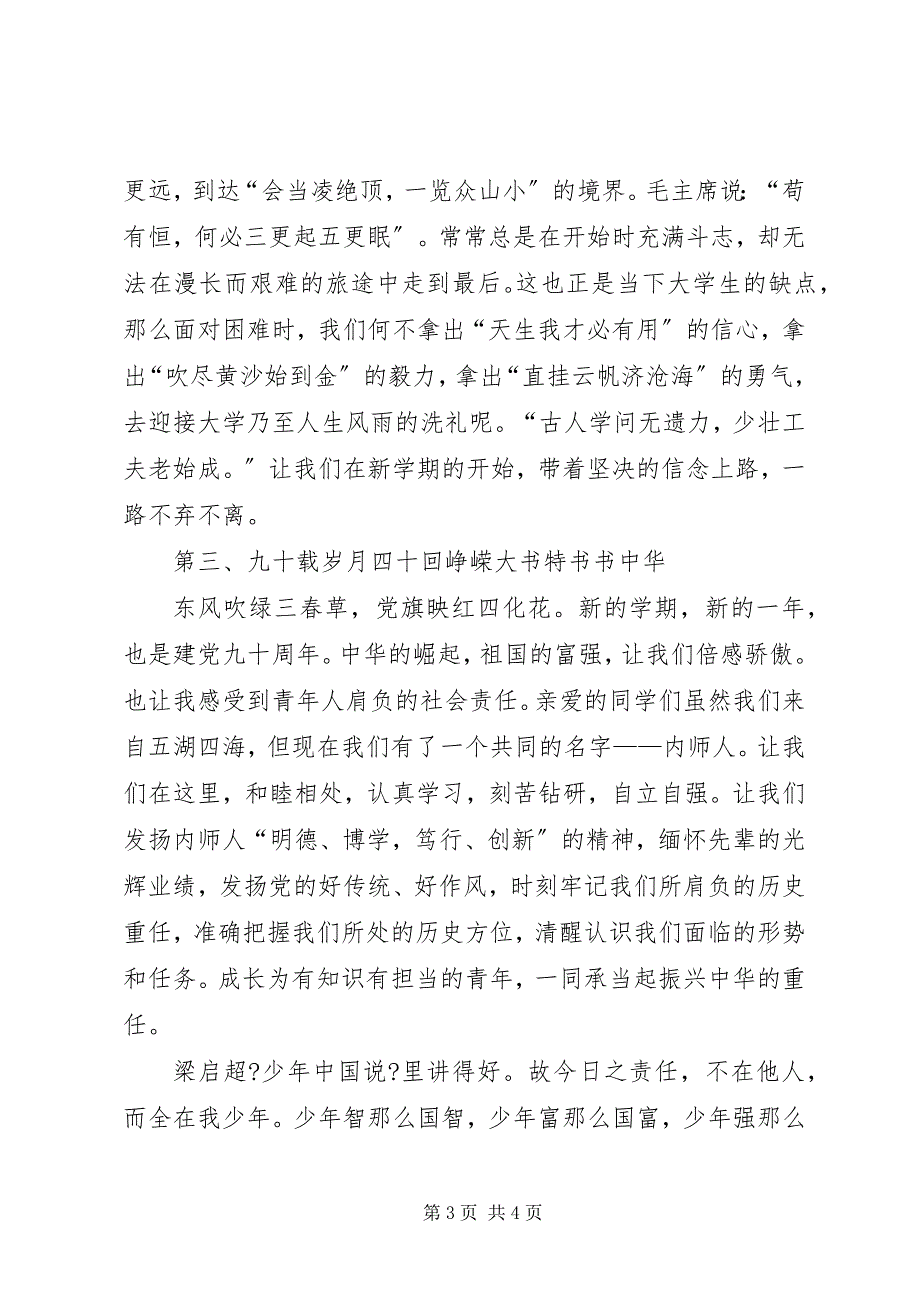 更远，到达“会当凌绝顶，一览众山小〞的境界。毛主席说：“苟
有恒，何必三更起五更眠〞。常常总是在开始时充满斗志，却无
法在漫长而艰难的旅途中走到最后。这也正是当下大学生的缺点，
那么面对困难时，我们何不拿出“天生我才必有用〞的信心，拿
出“吹尽黄沙始到金〞的毅力，拿出“直挂云帆济沧海〞的勇气，
去迎接大学乃至人生风雨的洗礼呢。“古人学问无遗力，少壮工
夫老始成。〞让我们在新学期的开始，带着坚决的信念上路，一
路不弃不离。
第三、九十载岁月四十回峥嵘大书特书书中华
东风吹绿三春草，党旗映红四化花。新的学期，新的一年，
也是建党九十周年。中华的崛起，祖国的富强，让我们倍感骄傲。
也让我感受到青年人肩负的社会责任。亲爱的同学们虽然我们来
自五湖四海，但现在我们有了一个共同的名字——内师人。让我
们在这里，和睦相处，认真学习，刻苦钻研，自立自强。让我们
发扬内师人“明德、博学，笃行、创新〞的精神，缅怀先辈的光
辉业绩，发扬党的好传统、好作风，时刻牢记我们所肩负的历史
重任，准确把握我们所处的历史方位，清醒认识我们面临的形势
和任务。成长为有知识有担当的青年，一同承当起振兴中华的重
任。
梁启超?少年中国说?里讲得好。故今日之责任，不在他人，
而全在我少年。少年智那么国智，少年富那么国富，少年强那么
第 3 页 共 4 页